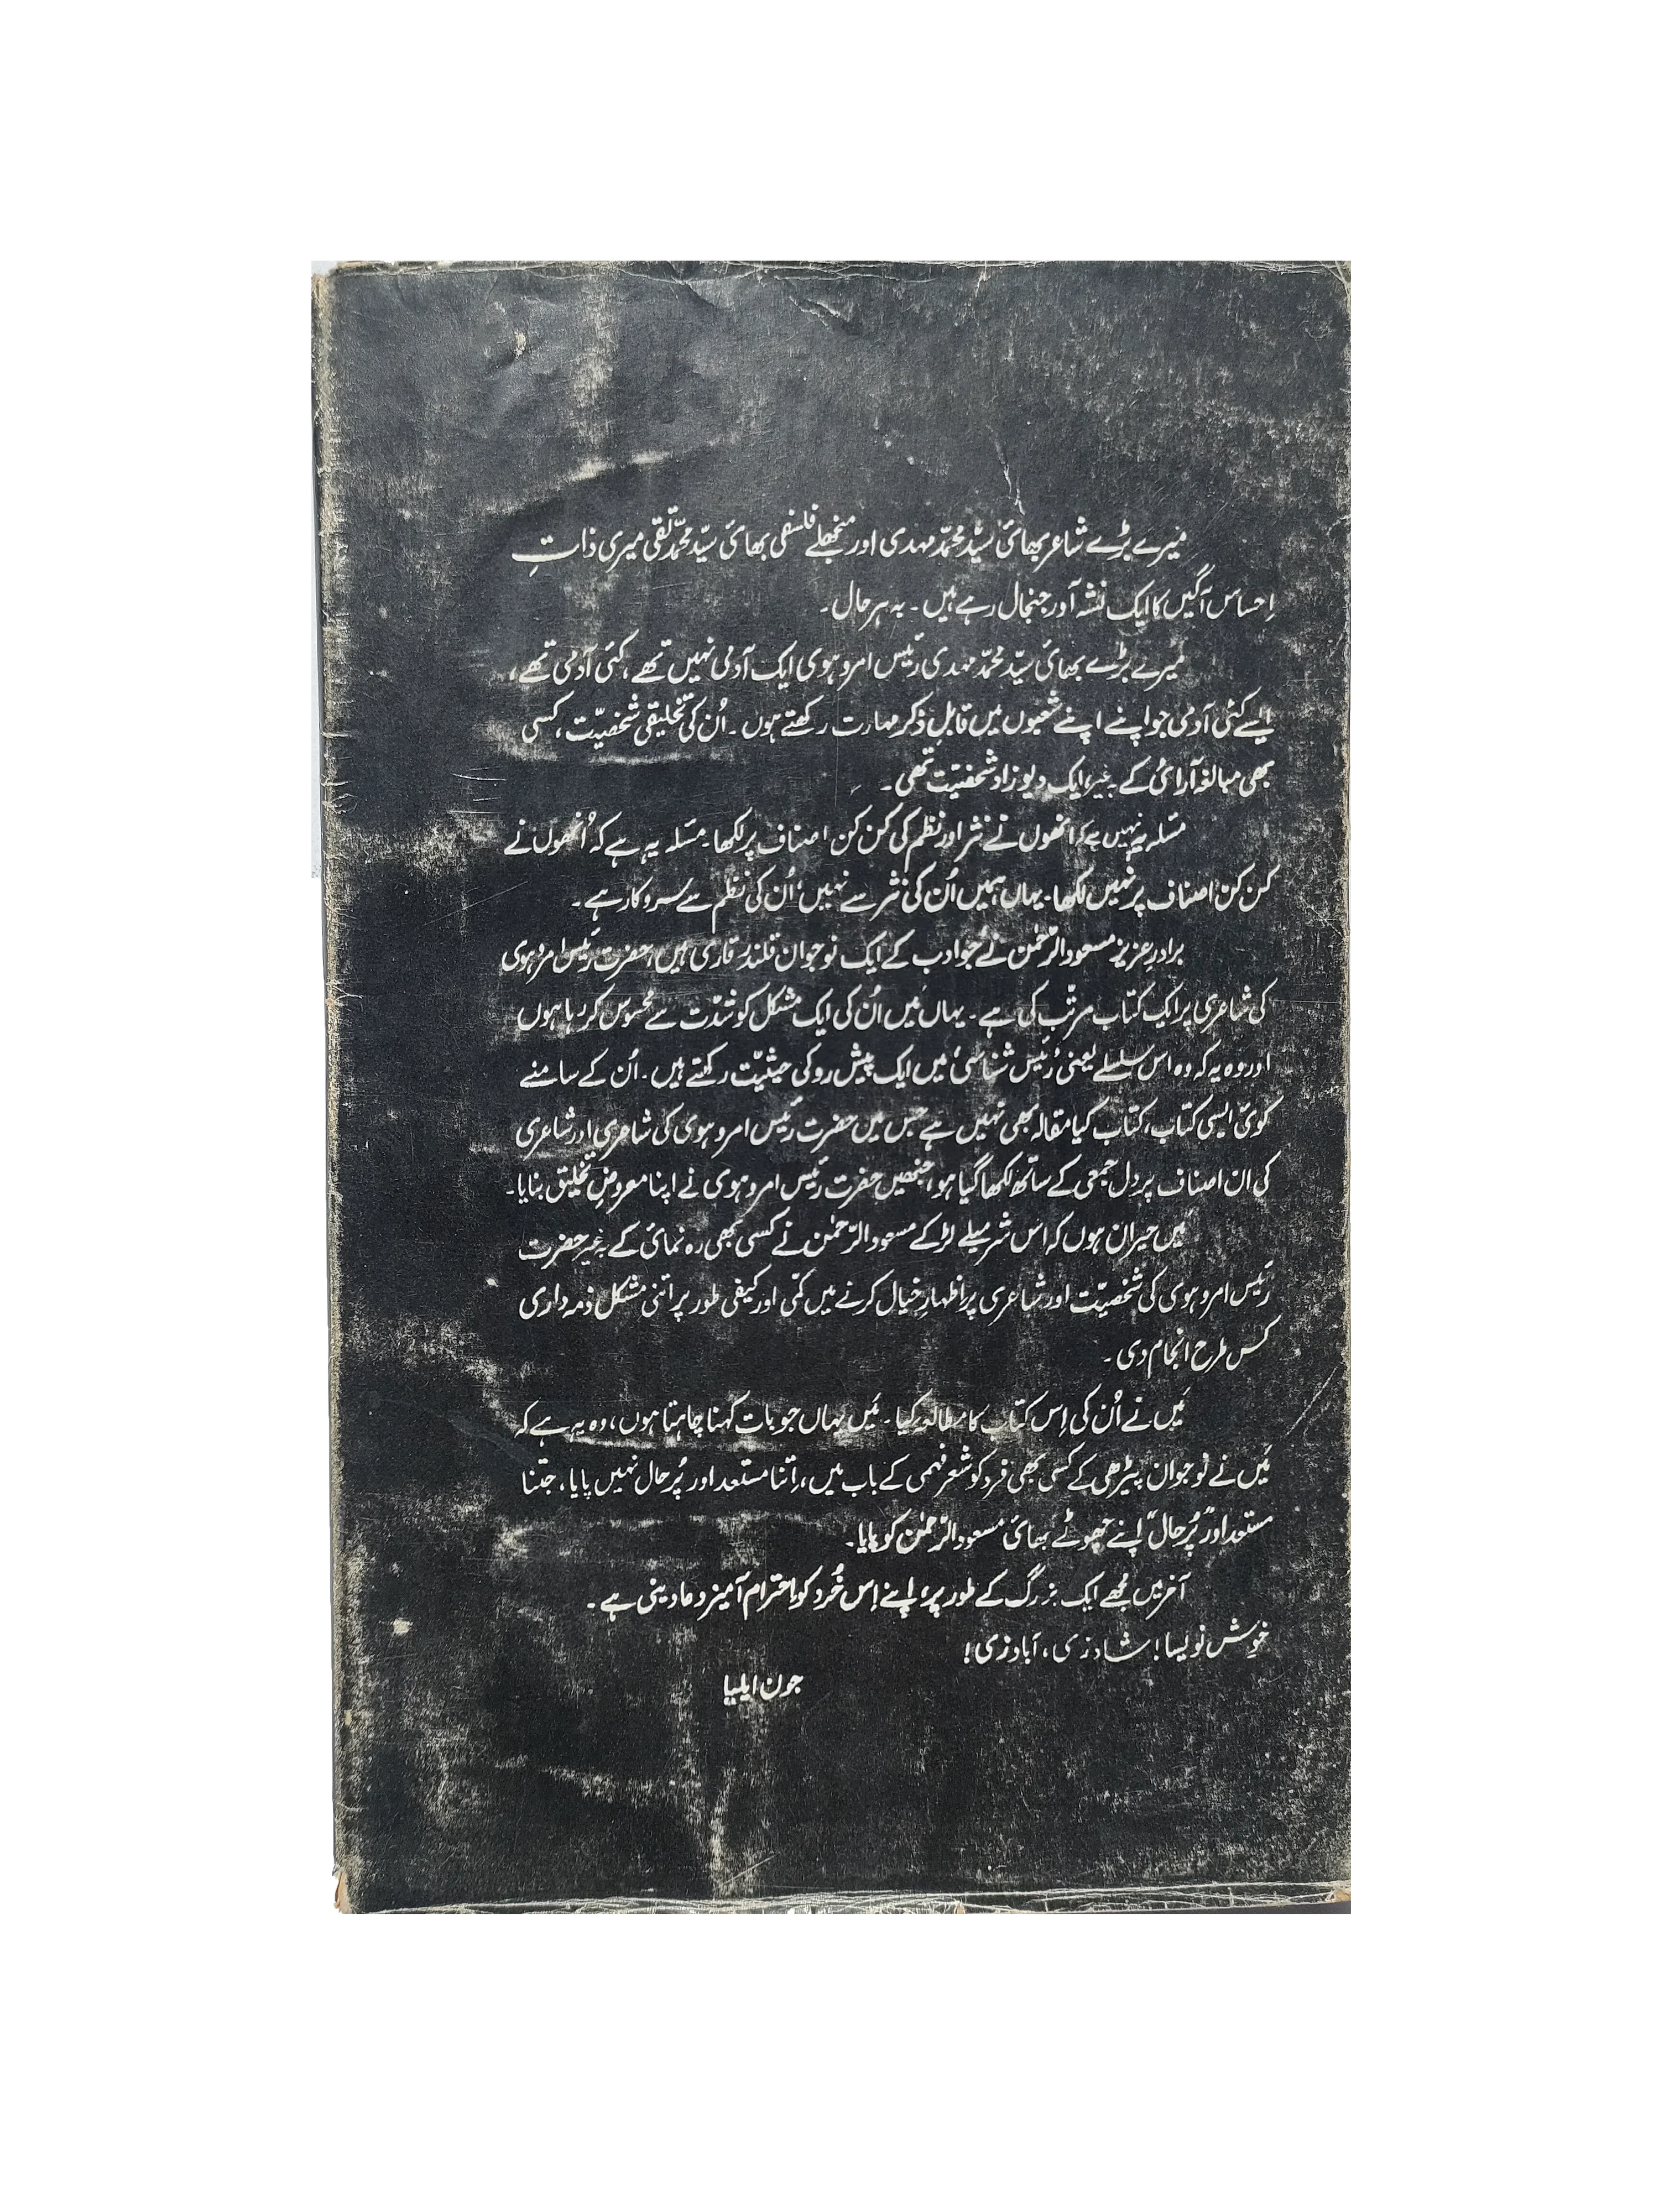 میرے بڑے شاعر بھائی سیّد محمّد مہدی اور منجھلے فلسفی بھائی سیّد محمّد تقی میری ذاتِ
اِحساس آگیں کا ایک نشہ آور جنجال رہے ہیں۔ بہ ہر حال۔
میرے بڑے بھائی سیّد محمّد مہدی رئیس امروہوی ایک آدمی نہیں تھے، کئی آدمی تھے،
ایسے کئی آدمی جو اپنے اپنے شعبوں میں قابلِ ذکر مہارت رکھتے ہوں۔ اُن کی تخلیقی شخصیّت، کسی
بھی مبالغہ آرائی کے بغیر، ایک دیوزاد شخصیّت تھی۔
مسَلہ یہ نہیں ہے کہ انھوں نے نثر اور نظم کی کن کن اصناف پر لکھا۔ مسَلہ یہ ہے کہ اُنھوں نے
کن کن اصناف پر نہیں لکھا۔ یہاں ہمیں اُن کی نثر سے نہیں، اُن کی نظم سے سروکار ہے۔
برادرِ عزیز مسعود الرّحمٰن نے جو ادب کے ایک نوجوان قلندر قاری ہیں، حضرت رئیس امروہوی
کی شاعری پر ایک کتاب مرتّب کی ہے۔ یہاں میں اُن کی ایک مشکل کو شدّت سے محسوس کر رہا ہوں
اور وہ یہ کہ وہ اس سلسلے یعنی ”رئیس شناسی“ میں ایک پیش رو کی حیثیّت رکھتے ہیں۔ اُن کے سامنے
کوئی ایسی کتاب، کتاب کیا مقالہ بھی نہیں ہے جس میں حضرت رئیس امروہوی کی شاعری اور شاعری
کی ان اصناف پر دل جمعی کے ساتھ لکھا گیا ہو، جنھیں حضرت رئیس امروہوی نے اپنا معروضِ تخلیق بنایا۔
میں حیران ہوں کہ اس شرمیلے لڑکے مسعود الرّحمٰن نے کسی بھی رہ نمائی کے بغیر حضرت
رئیس امروہوی کی شخصیّت اور شاعری پر اظہارِ خیال کرنے میں کمّی اور کیفی طور پر اتنی مشکل ذمہ داری
کس طرح انجام دی۔
مَیں نے اُن کی اِس کتاب کا مطالعہ کیا۔ مَیں یہاں جو بات کہنا چاہتا ہوں، وہ یہ ہے کہ
مَیں نے نوجوان پیڑھی کے کسی بھی فرد کو شعر فہمی کے باب میں، اِتنا مستعد اور پُر حال نہیں پایا، جتنا
مستعد اور ”پُر حال“ اپنے چھوٹے بھائی مسعود الرّحمٰن کو پایا۔
آخر میں مجھے ایک بزرگ کے طور پر، اپنے اِس خُرد کو احترام آمیز دعا دینی ہے۔
خوش نویسا! شاد زی، آباد زی!
جون ایلیا